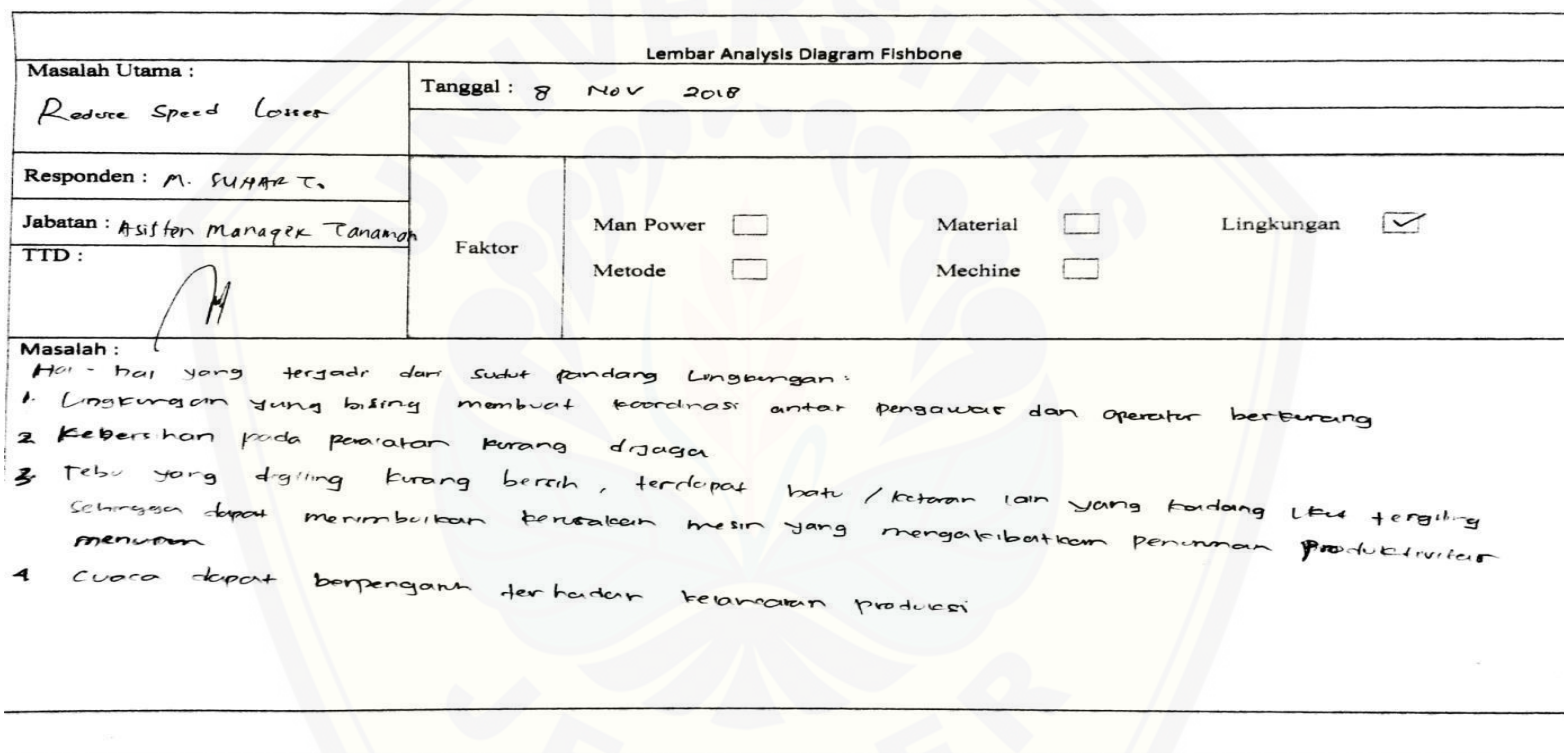 Lembar Analysis Diagram Fishbone
Masalah Utama :
Reduce Speed Losses
Tanggal : 8 Nov 2018
Responden : M. SUHART.
Jabatan : Asisten Manager Tanaman
TTD :
Faktor
Man Power
Material
Lingkungan
Metode
Mechine
Masalah :
Hal - hal yang terjadi dari sudut pandang Lingkungan :
1. Lingkungan yang bising membuat koordinasi antar pengawas dan operator berkurang
2 Kebersihan pada peralatan kurang dijaga
3. Tebu yang digiling kurang bersih, terdapat batu / kotoran lain yang kadang ikut tergiling
Sehingga dapat menimbulkan kerusakan mesin yang mengakibatkan penurunan Produktivitas
menurun
4 Cuaca dapat berpengaruh terhadap kelancaran produksi
UNIVERSITAS
JEMBER